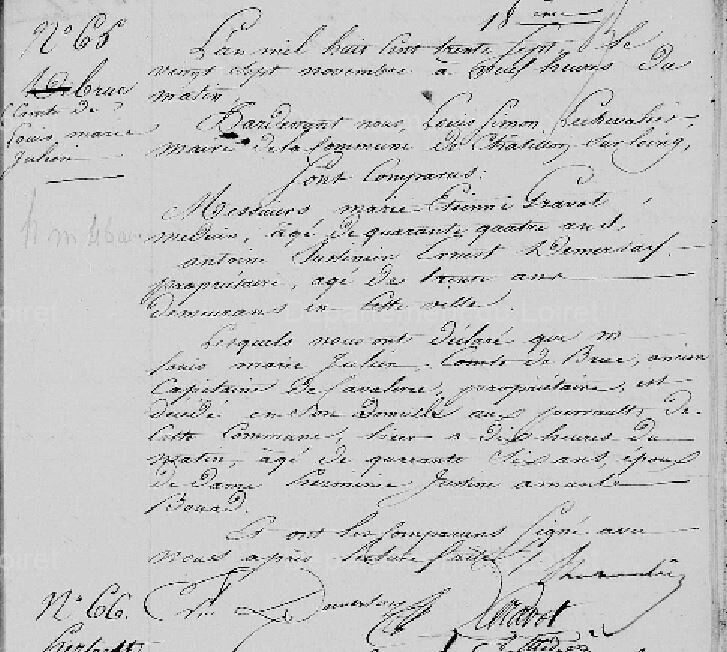 18
N° 65
de Brue
Comte de
Louis marie
Julien
L'an mil huit cent trente sept le
vingt sept novembre à neuf heures du
matin
Pardevant nous, Louis Simon Lechevalier,
maire de la Commune de Chatillon sur loing,
Sont Comparus:
Messieurs marie Etienne Gravot
medecin, agé de quarante quatre ans,
antoine Justinien Ernest
propriétaire, agé de trente ans
demeurans en cette ville
Lesquels nous ont déclaré que m
Louis marie Julien Comte de Brue, ancien
Capitaine de Cavalerie, propriétaire, est
décédé en son Domicile aux de
cette Commune, hier à dix heures du
matin, agé de quarante Six ans, époux
de Dame herminie Justine amante
Et ont les Comparans Signé avec
nous après lecture faite
N° 66.